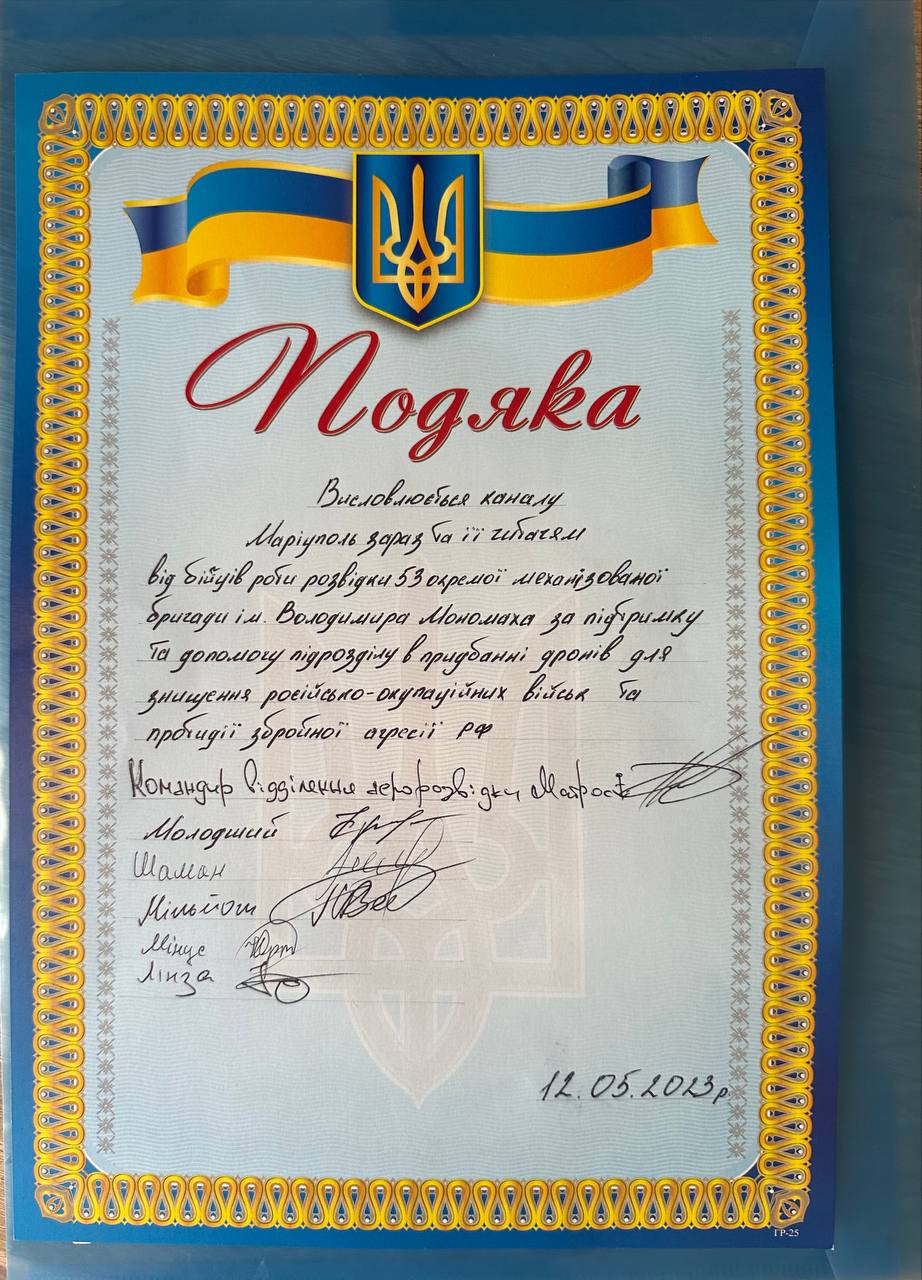 Подяка
Висловлюється каналу
Маріуполь зараз та її читачям
від бійців роти розвідки 53 окремої механізованої
бригади ім. Володимира Мономаха за підтримку
та допомогу підрозділу в придбанні дронів для
знищення російсько-окупаційних військ та
протидії збройної агресії РФ
Командир відділення аеророзвідки Матрос
Молодший
Шаман
Мільйон
Мінус
Лінза
12.05.2023р.
ГР-25